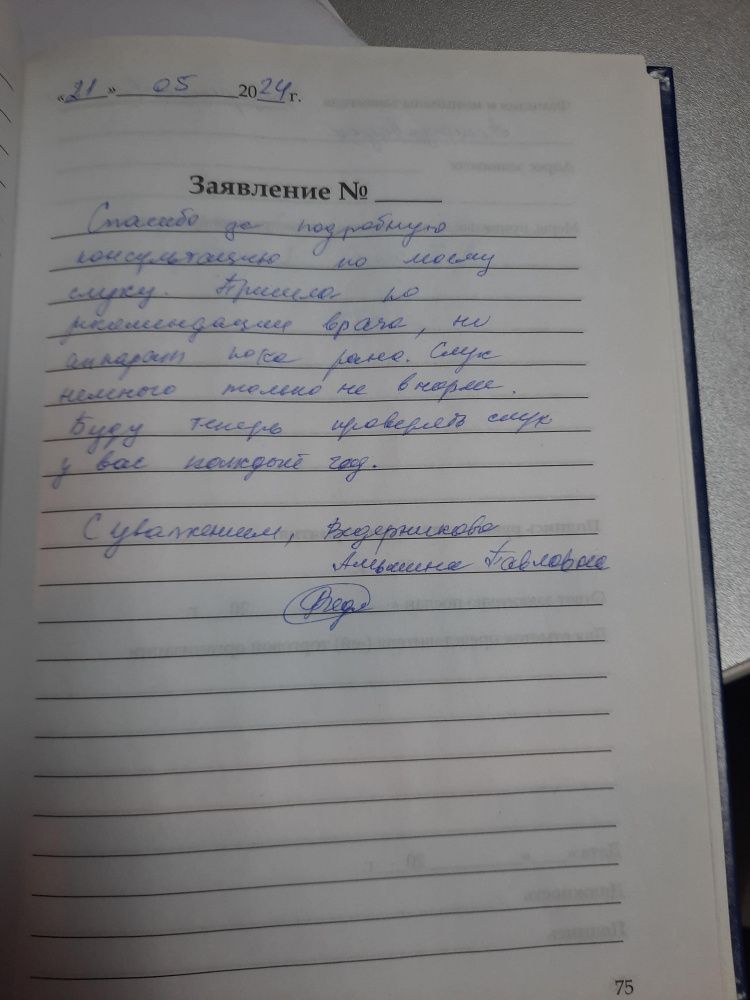 «21» 05 2024 г.
Заявление № ____
Спасибо за подробную
консультацию по моему
слуху. Пришла по
рекомендации врача, но
аппарат пока рано. Слух
немного только не в норме.
Буду теперь проверять слух
у вас каждый год.
С уважением, Ведерникова
Павловна
75